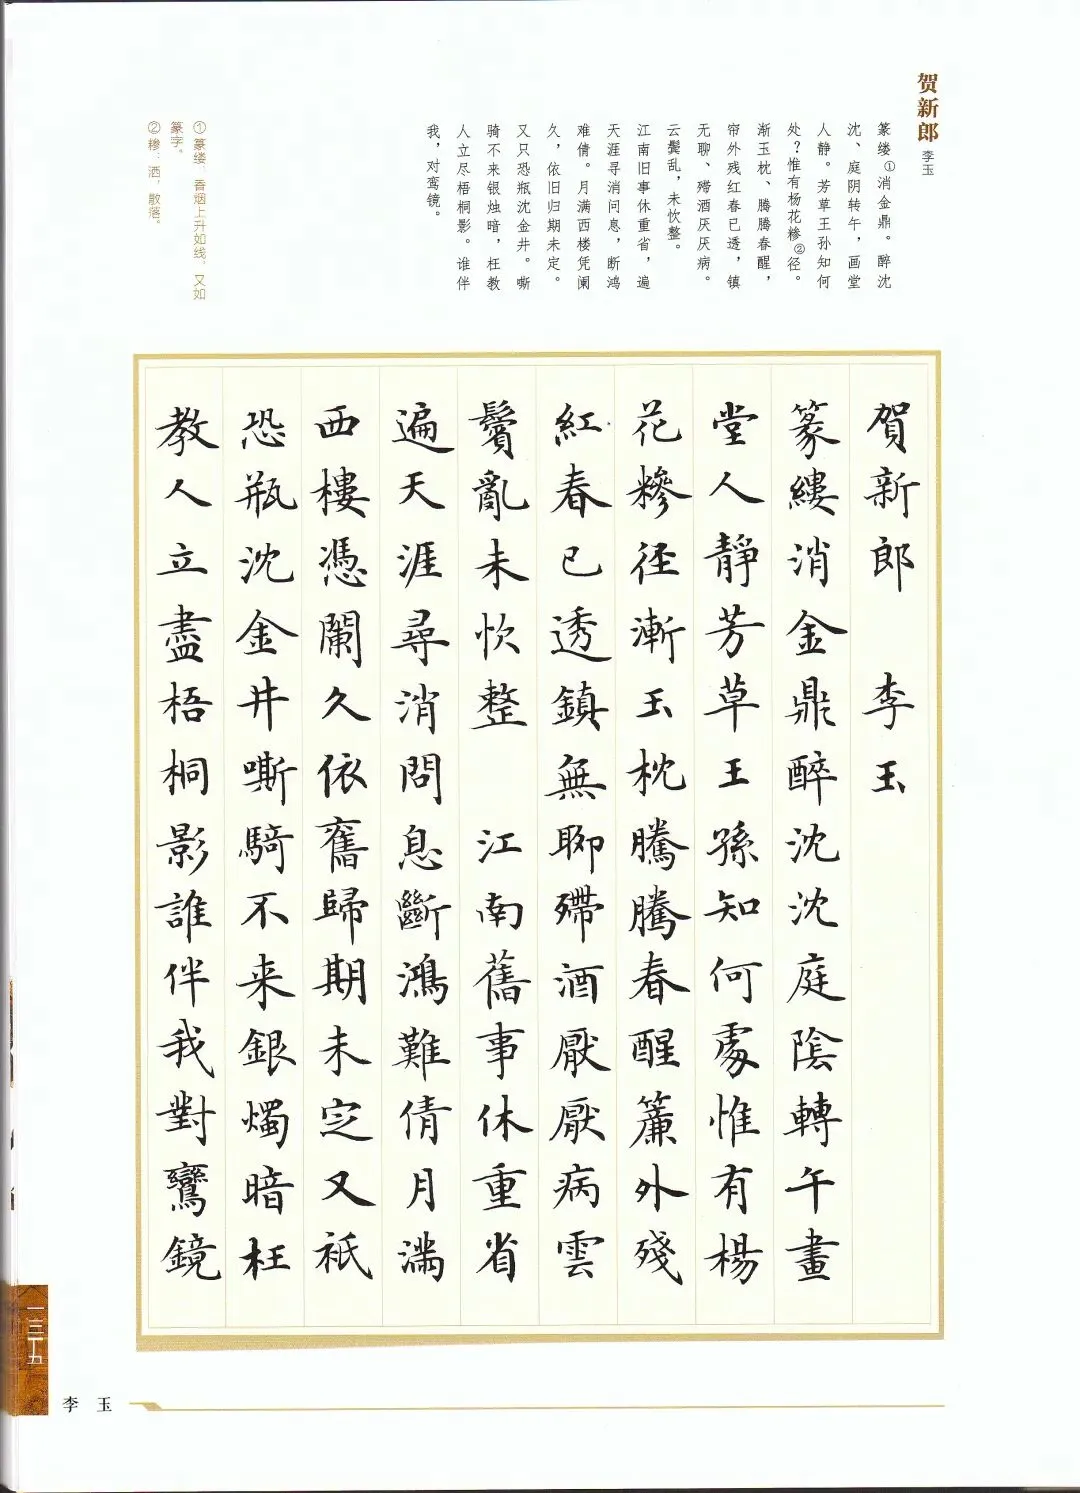 贺新郎
李玉
篆缕①消金鼎。醉沈
沈、庭阴转午，画堂
人静。芳草王孙知何
处？惟有杨花糁②径。
渐玉枕、腾腾春醒，
帘外残红春已透，镇
无聊、殢酒厌厌病。
云鬓乱，未忺整。
江南旧事休重省，遍
天涯寻消问息，断鸿
难倩。月满西楼凭阑
久，依旧归期未定。
又只恐瓶沈金井。嘶
骑不来银烛暗，枉教
人立尽梧桐影。谁伴
我，对鸾镜。
① 篆缕：香烟上升如线，又如
篆字。
② 糁：洒，散落。
賀新郎 李玉
篆縷消金鼎醉沈沈庭陰轉午畫
堂人靜芳草王孫知何處惟有楊
花糝徑漸玉枕騰騰春醒簾外殘
紅春已透鎮無聊殢酒厭厭病雲
鬢亂未忺整 江南舊事休重省
遍天涯尋消問息斷鴻難倩月満
西樓憑闌久依舊歸期未定又祇
恐瓶沈金井嘶騎不来銀燭暗枉
教人立盡梧桐影誰伴我對鸞鏡
一三五
李玉